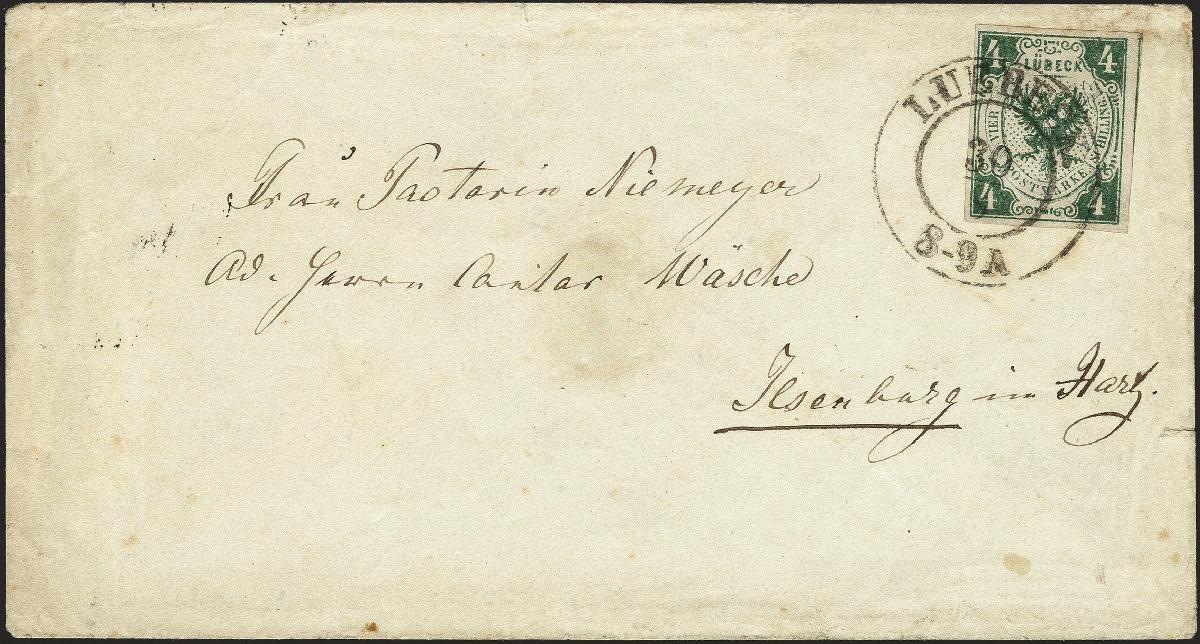 4 LÜBECK 4
VIER SCHILLING
POSTMARKE
4 4
LUEBECK
30
8-9 A
Frau Pastorin Niemeyer
Ad. Herrn Cantor Wäsche
Ilsenburg im Harz.